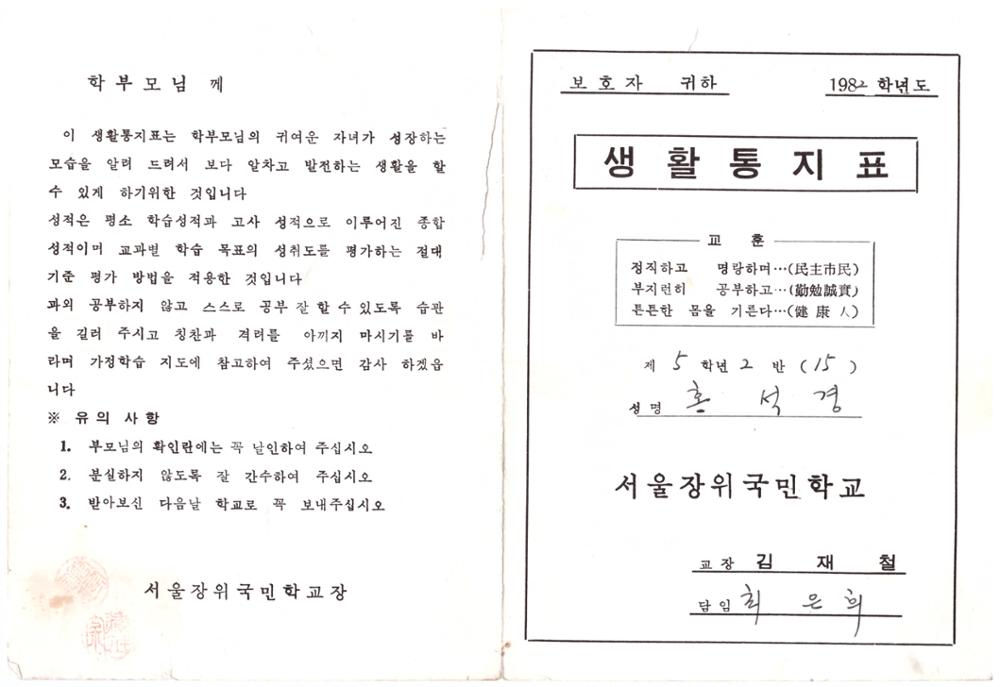 학부모님 께
이 생활통지표는 학부모님의 귀여운 자녀가 성장하는
모습을 알려 드려서 보다 알차고 발전하는 생활을 할
수 있게 하기위한 것입니다
성적은 평소 학습성적과 고사 성적으로 이루어진 종합
성적이며 교과별 학습 목표의 성취도를 평가하는 절대
기준 평가 방법을 적용한 것입니다
과외 공부하지 않고 스스로 공부 잘 할 수 있도록 습관
을 길러 주시고 칭찬과 격려를 아끼지 마시기를 바
라며 가정학습 지도에 참고하여 주셨으면 감사 하겠읍
니다
※ 유의 사항
1. 부모님의 확인란에는 꼭 날인하여 주십시오
2. 분실하지 않도록 잘 간수하여 주십시오
3. 받아보신 다음날 학교로 꼭 보내주십시오
서울장위국민학교장
보호자 귀하 1982 학년도
생활통지표
교 훈
정직하고 명랑하며…(民主市民)
부지런히 공부하고…(勤勉誠實)
튼튼한 몸을 기른다…(健康人)
제 5 학년 2 반 (15)
성명 홍석경
서울장위국민학교
교장 김재철
담임 최은희